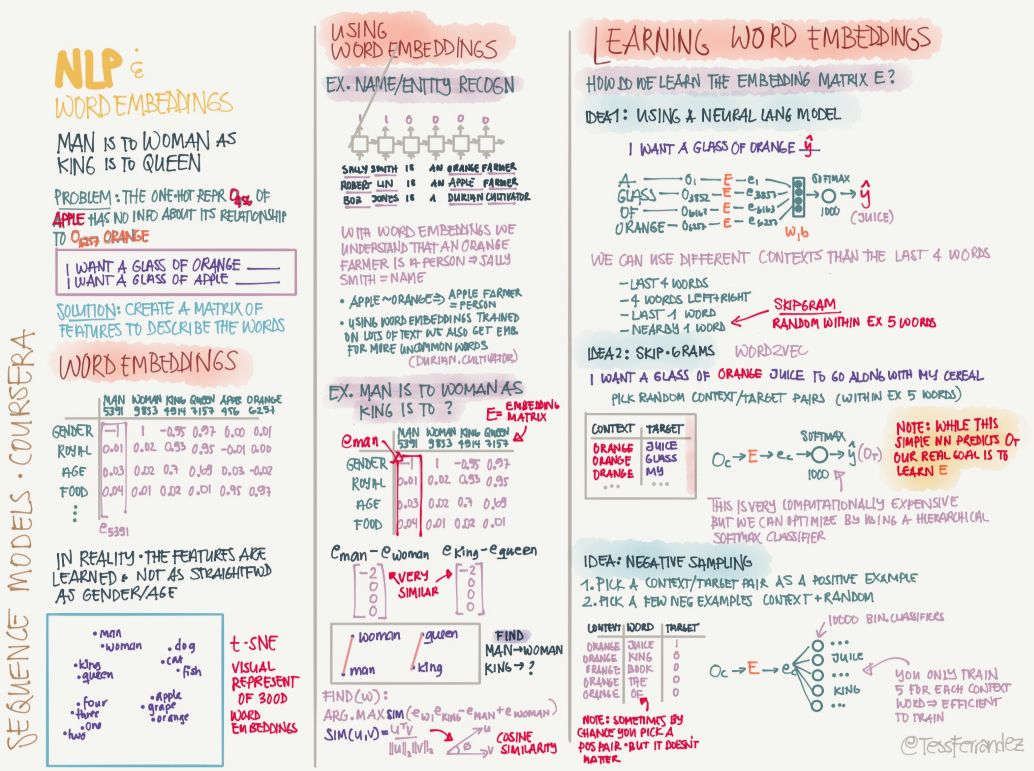 SEQUENCE MODELS · COURSERA
NLP &
WORD EMBEDDINGS
MAN IS TO WOMAN AS
KING IS TO QUEEN
PROBLEM: THE ONE-HOT REPR O456 OF
APPLE HAS NO INFO ABOUT ITS RELATIONSHIP
TO O6257 ORANGE
I WANT A GLASS OF ORANGE ____
I WANT A GLASS OF APPLE ____
SOLUTION: CREATE A MATRIX OF
FEATURES TO DESCRIBE THE WORDS
WORD EMBEDDINGS
MAN WOMAN KING QUEEN APPLE ORANGE
5391 9853 4914 7157 456 6257
GENDER -1 1 -0.95 0.97 0.00 0.01
ROYAL 0.01 0.02 0.93 0.95 -0.01 0.00
AGE 0.03 0.02 0.7 0.69 0.03 -0.02
FOOD 0.04 0.01 0.02 0.01 0.95 0.97
e5391
IN REALITY · THE FEATURES ARE
LEARNED & NOT AS STRAIGHTFWD
AS GENDER/AGE
man
woman
dog
king
cat
queen
fish
four
apple
three
grape
one
orange
two
t-SNE
VISUAL
REPRESENT
OF 300D
WORD
EMBEDDINGS
USING
WORD EMBEDDINGS
EX. NAME/ENTITY RECOGN
1 1 0 0 0 0
SALLY SMITH IS AN ORANGE FARMER
ROBERT LIN IS AN APPLE FARMER
BOB JONES IS A DURIAN CULTIVATOR
WITH WORD EMBEDDINGS WE
UNDERSTAND THAT AN ORANGE
FARMER IS A PERSON ⇒ SALLY
SMITH = NAME
• APPLE ~ ORANGE ⇒ APPLE FARMER
= PERSON
• USING WORD EMBEDDINGS TRAINED
ON LOTS OF TEXT WE ALSO GET EMB.
FOR MORE UNCOMMON WORDS
(DURIAN, CULTIVATOR)
EX. MAN IS TO WOMAN AS
KING IS TO ?
E = EMBEDDING
MATRIX
eman
MAN WOMAN KING QUEEN
5391 9853 4914 7157
GENDER -1 1 -0.95 0.97
ROYAL 0.01 0.02 0.93 0.95
AGE 0.03 0.02 0.7 0.69
FOOD 0.04 0.01 0.02 0.01
eman - ewoman eking - equeen
-2 -2
0 0
0 0
0 0
VERY
SIMILAR
woman queen
man king
FIND
MAN → WOMAN
KING → ?
FIND(W):
ARG.MAX SIM(eW, eKING - eMAN + eWOMAN)
SIM(U,V) = UᵀV
||U||₂||V||₂
u
v
φ
COSINE
SIMILARITY
LEARNING WORD EMBEDDINGS
HOW DO WE LEARN THE EMBEDDING MATRIX E?
IDEA1: USING A NEURAL LANG MODEL
I WANT A GLASS OF ORANGE ŷ
A O1 E e1
GLASS O3852 E e3852
OF O6163 E e6163
ORANGE O6257 E e6257
W,b
SOFTMAX
1000
ŷ
(JUICE)
WE CAN USE DIFFERENT CONTEXTS THAN THE LAST 4 WORDS
- LAST 4 WORDS
- 4 WORDS LEFT+RIGHT
- LAST 1 WORD
- NEARBY 1 WORD
SKIPGRAM
RANDOM WITHIN EX 5 WORDS
IDEA2: SKIP·GRAMS WORD2VEC
I WANT A GLASS OF ORANGE JUICE TO GO ALONG WITH MY CEREAL
PICK RANDOM CONTEXT/TARGET PAIRS (WITHIN EX 5 WORDS)
CONTEXT TARGET
ORANGE JUICE
ORANGE GLASS
ORANGE MY
... ...
SOFTMAX
Oc → E → ec → ŷ (OT)
1000
NOTE: WHILE THIS
SIMPLE NN PREDICTS OT
OUR REAL GOAL IS TO
LEARN E
THIS IS VERY COMPUTATIONALLY EXPENSIVE
BUT WE CAN OPTIMIZE BY USING A HIERARCHICAL
SOFTMAX CLASSIFIER
IDEA: NEGATIVE SAMPLING
1. PICK A CONTEXT/TARGET PAIR AS A POSITIVE EXAMPLE
2. PICK A FEW NEG EXAMPLES CONTEXT + RANDOM
CONTEXT WORD TARGET
ORANGE JUICE 1
ORANGE KING 0
ORANGE BOOK 0
ORANGE THE 0
ORANGE OF 0
NOTE: SOMETIMES BY
CHANCE YOU PICK A
POS PAIR · BUT IT DOESN'T
MATTER
10000 BIN. CLASSIFIERS
Oc → E → ec
...
JUICE
...
KING
...
YOU ONLY TRAIN
5 FOR EACH CONTEXT
WORD ⇒ EFFICIENT
TO TRAIN
@TessFerrandez